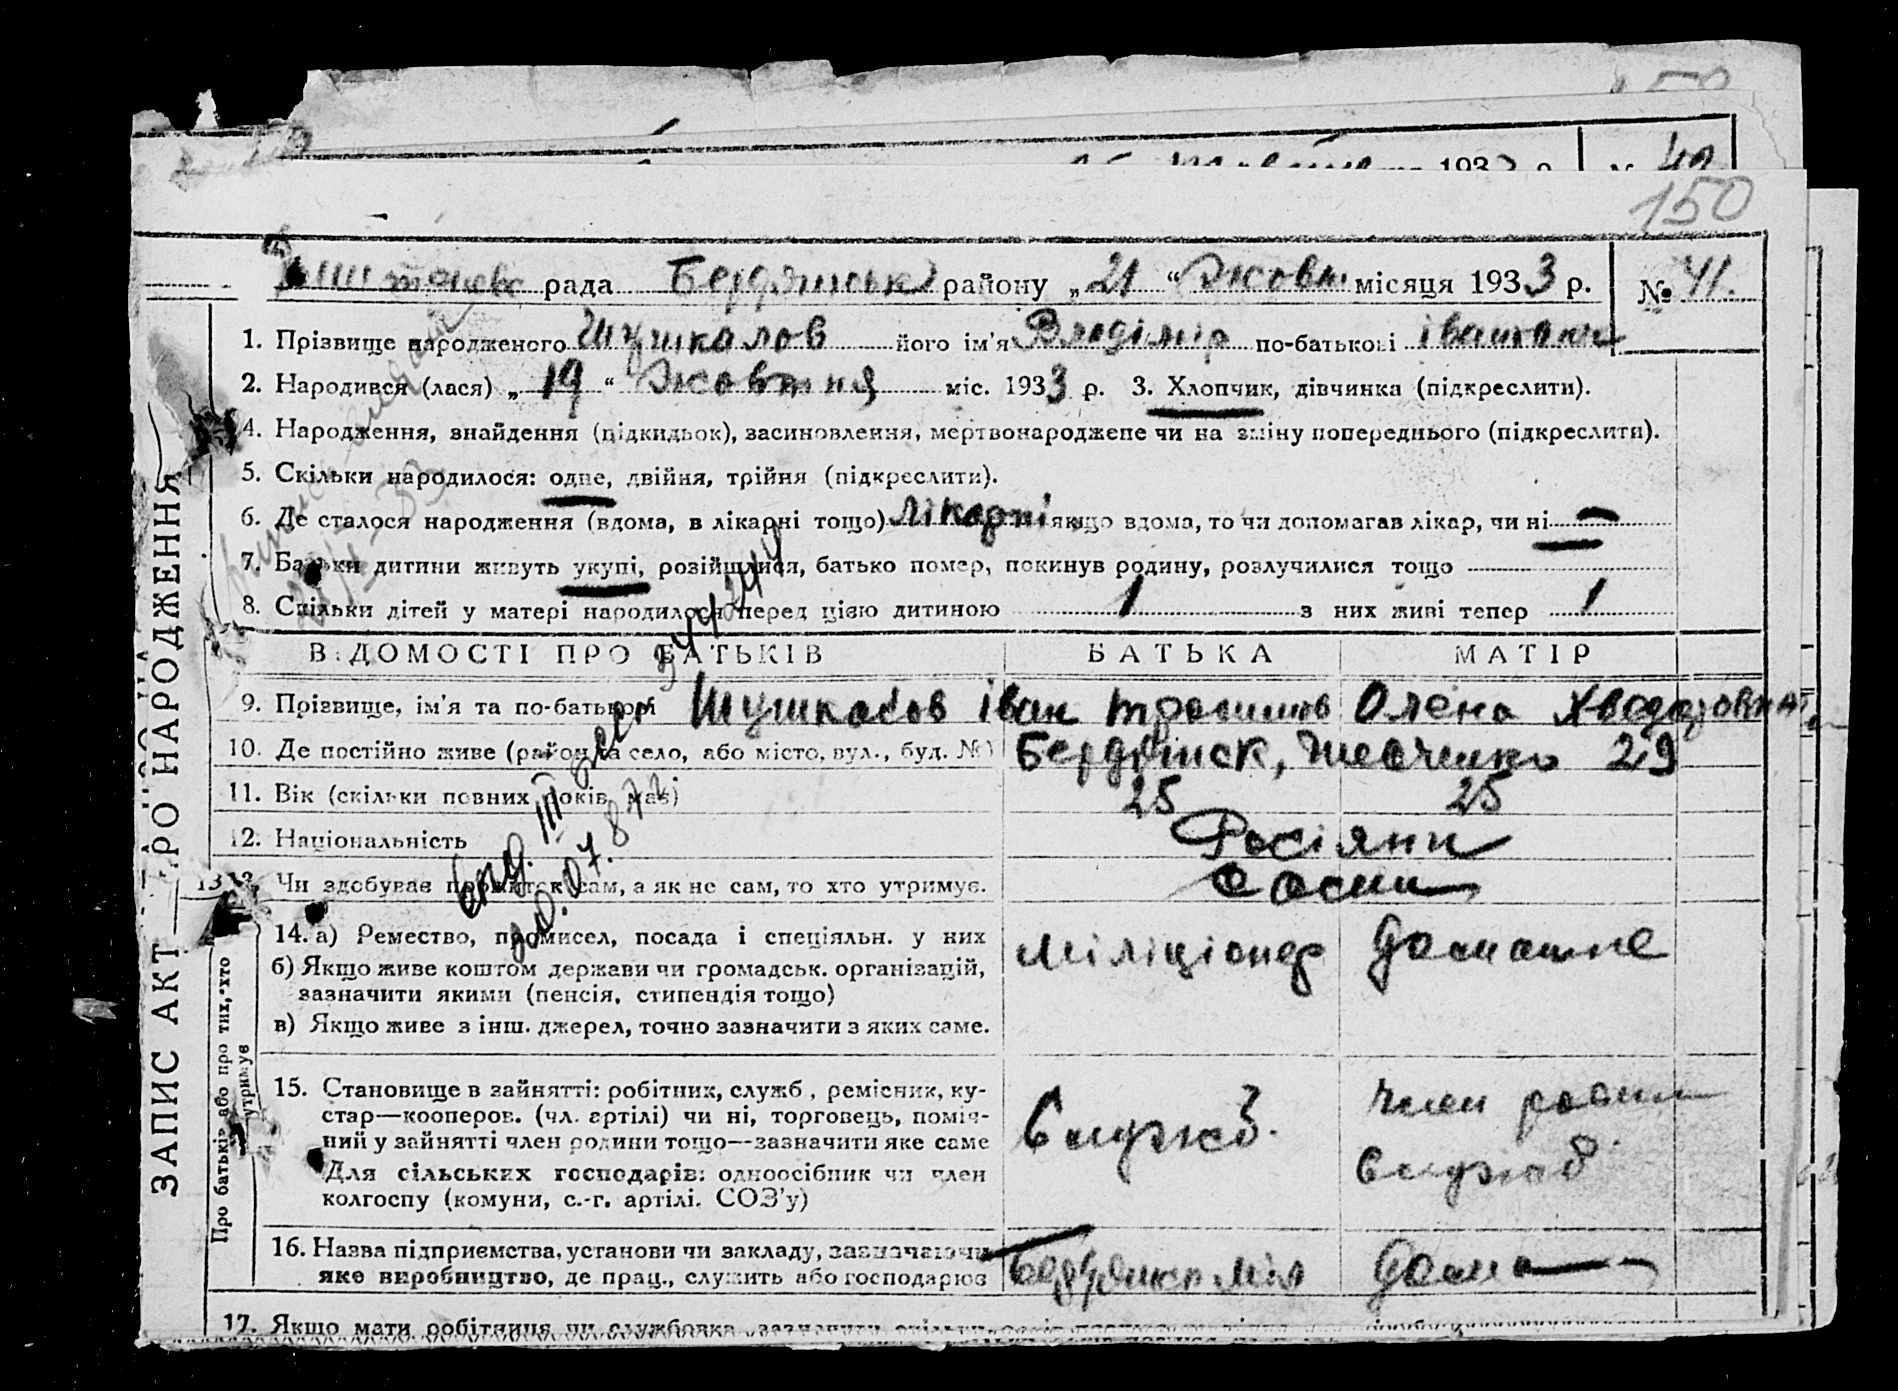 150
рада Бердянськ району „21“ Жовтн місяця 1933 р. № 41.
1. Прізвище народженого Шушкалов його ім'я Владімір по-батькові
2. Народився (лася) „19“ Жовтня міс. 1933 р. 3. Хлопчик, дівчинка (підкреслити).
4. Народження, знайдення (підкидьок), засиновлення, мертвонароджене чи на зміну попереднього (підкреслити).
5. Скільки народилося: одне, двійня, трійня (підкреслити).
6. Де сталося народження (вдома, в лікарні тощо) Лікарні якщо вдома, то чи допомагав лікар, чи ні —
7. Батьки дитини живуть укупі, розійшлися, батько помер, покинув родину, розлучилися тощо
8. Скільки дітей у матері народилося перед цією дитиною 1 з них живі тепер 1
ВІДОМОСТІ ПРО БАТЬКІВ БАТЬКА МАТІР
9. Прізвище, ім'я та по-батькові Шушкалов Іван Олена
10. Де постійно живе (район та село, або місто, вул., буд. №) Бердянск, Шевченко 29
11. Вік (скільки повних років має) 25 25
12. Національність Росіяни
13. Чи здобував прожиток сам, а як не сам, то хто утримує.
14. а) Ремество, промисел, посада і спеціяльн. у них Міліціонер Домашне
б) Якщо живе коштом держави чи громадськ. організацій,
зазначити якими (пенсія, стипендія тощо)
в) Якщо живе з інш. джерел, точно зазначити з яких саме.
15. Становище в зайнятті: робітник, служб., ремісник, ку-
стар—кооперов. (чл. артілі) чи ні, торговець, поміч-
ний у зайнятті член родини тощо—зазначити яке саме Служб. Член родини
Для сільських господарів: одноосібник чи член Служб
колгоспу (комуни, с.-г. артілі, СОЗ'у)
16. Назва підприємства, установи чи закладу, зазначаючи
яке виробництво, де прац., служить або господарює Дома
17. Якщо мати робітниця чи службовка, зазначити
ЗАПИС АКТ ПРО НАРОДЖЕННЯ
Про батьків або про тих, хто
утримує